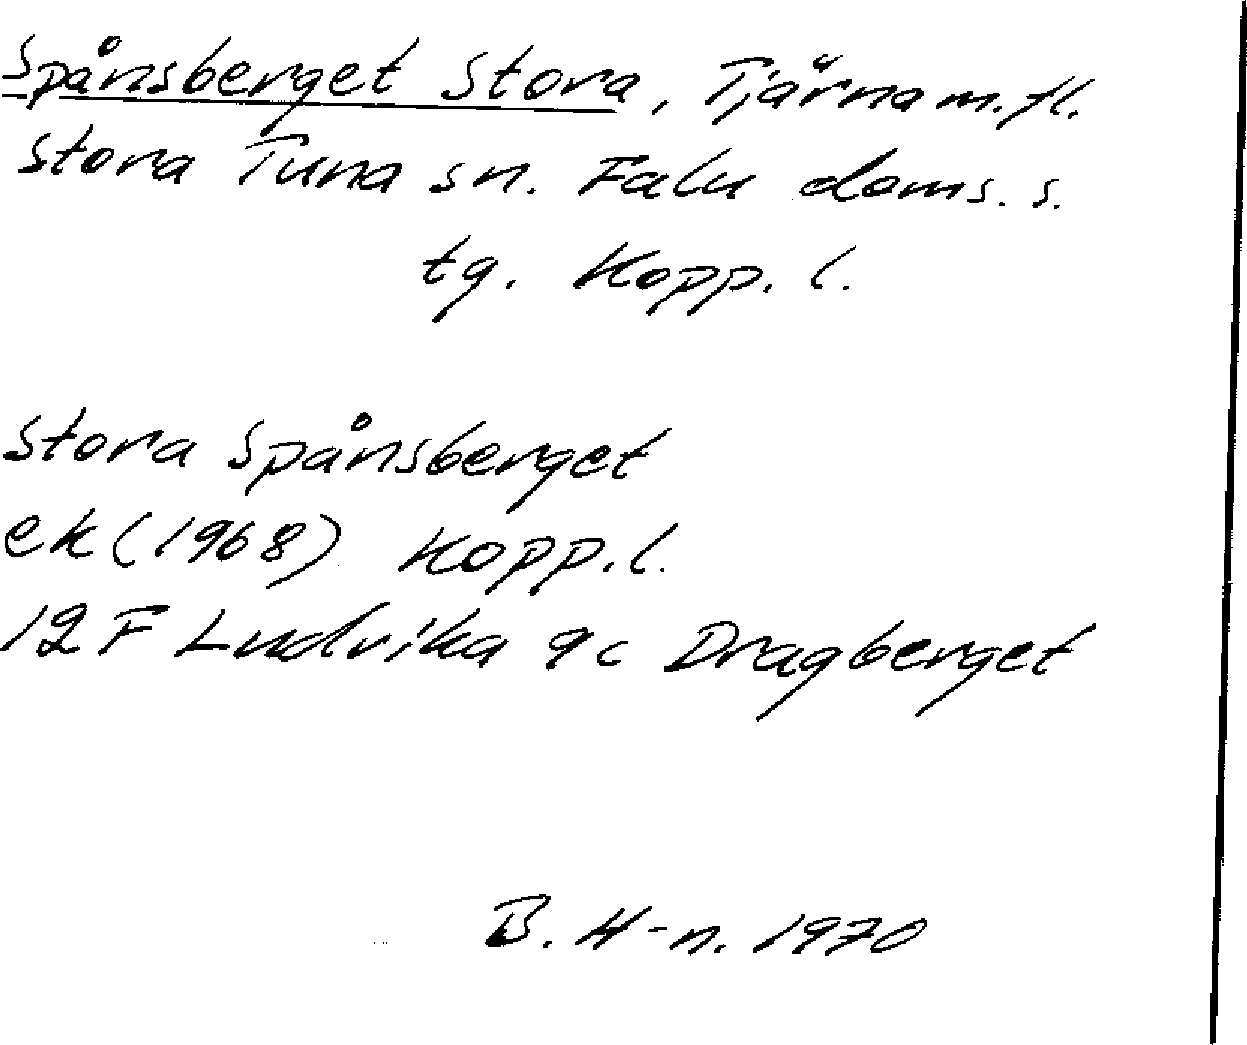 Spånsberget Stora, Tjärna m.fl.
Stora Tuna sn. Falu doms. s.
tg. Kopp. l.
Stora Spånsberget
ek (1968) Kopp. l.
12 F Ludvika 9c Dragberget
B. H-n. 1970